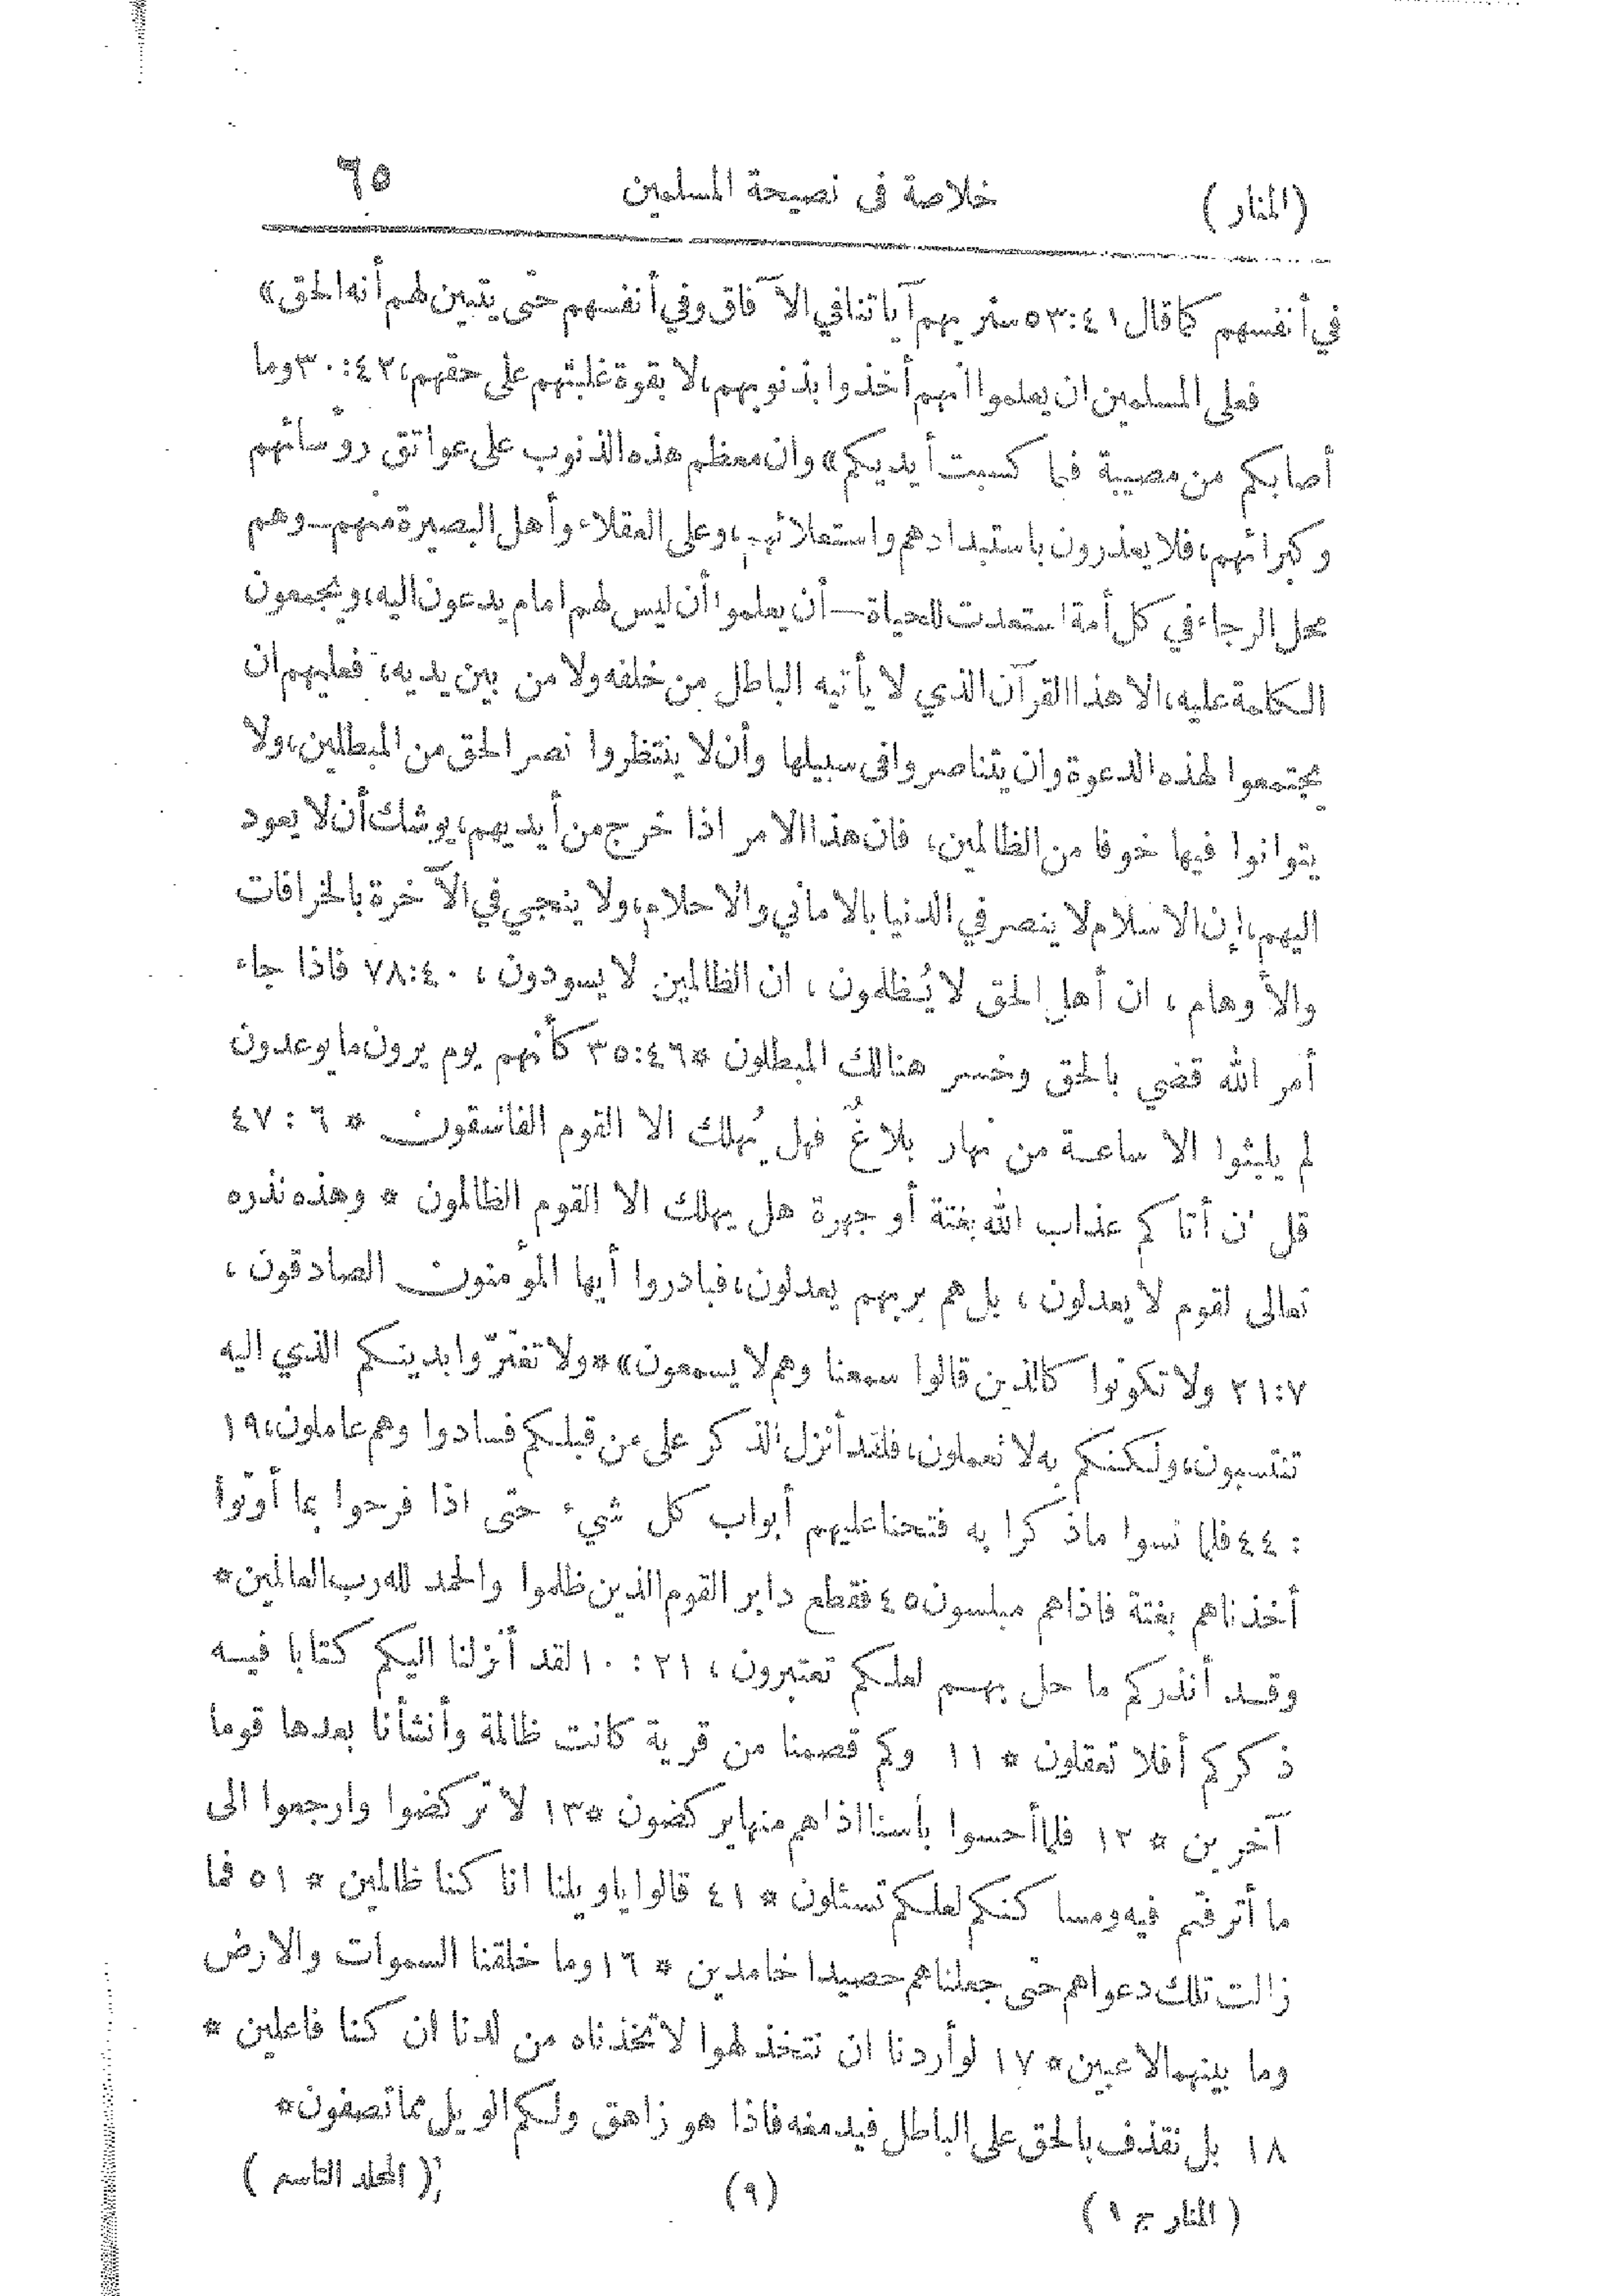 (المنار) خلاصة فى نصيحة المسلمين ٦٥
في أنفسهم كما قال ٥٣:٤١ سنريهم آياتنا في الآفاق وفي أنفسهم حتى يتبين لهم أنه الحق»
فعلى المسلمين ان يعلموا انهم أخذوا بذنوبهم، لا بقوة غلبتهم على حقهم، ٣٠:٤٢ وما
أصابكم من مصيبة فبما كسبت أيديكم» وان معظم هذه الذنوب على عواتق رؤسائهم
وكبرائهم، فلا يعذرون باستبدادهم واستعلائهم، وعلى العقلاء وأهل البصيرة منهم — وهم
محل الرجاء في كل أمة استعدت للحياة — أن يعلموا أن ليس لهم امام يدعون اليه، ويجمعون
الكلمة عليه، الا هذا القرآن الذي لا يأتيه الباطل من خلفه ولا من بين يديه، فعليهم ان
يجتمعوا لهذه الدعوة وان يتناصروا فى سبيلها وأن لا ينتظروا نصر الحق من المبطلين، ولا
يتوانوا فيها خوفا من الظالمين، فان هذا الامر اذا خرج من أيديهم، يوشك أن لا يعود
اليهم، إن الاسلام لا ينصر في الدنيا بالاماني والاحلام، ولا ينجي في الآخرة بالخرافات
والأوهام، ان أهل الحق لا يُظلمون، ان الظالمين لا يسودون، ٧٨:٤٠ فاذا جاء
أمر الله قضي بالحق وخسر هنالك المبطلون * ٣٥:٤٦ كأنهم يوم يرون ما يوعدون
لم يلبثوا الا ساعة من نهار بلاغٌ فهل يُهلك الا القوم الفاسقون * ٦ : ٤٧
قل ان أتاكم عذاب الله بغتة أو جهرة هل يهلك الا القوم الظالمون * وهذه نذره
تعالى لقوم لا يعدلون، بل هم بربهم يعدلون، فبادروا أيها المؤمنون الصادقون،
٢١:٧ ولا تكونوا كالذين قالوا سمعنا وهم لا يسمعون» * ولا تغترّوا بدينكم الذي اليه
تنتسبون، ولكنكم به لا تعملون، فلقد أنزل الذكر على من قبلكم فسادوا وهم عاملون، ١٩
: ٤٤ فلما نسوا ما ذكرا به فتحنا عليهم أبواب كل شيء حتى اذا فرحوا بما أوتوا
أخذناهم بغتة فاذاهم مبلسون ٤٥ فقطع دابر القوم الذين ظلموا والحمد لله رب العالمين *
وقد أنذركم ما حل بهم لعلكم تعتبرون، ٢١ : ١٠ لقد أنزلنا اليكم كتابا فيه
ذكركم أفلا تعقلون * ١١ وكم قصمنا من قرية كانت ظالمة وأنشأنا بعدها قوما
آخرين * ١٢ فلما أحسوا بأسنا اذاهم منها يركضون * ١٣ لا تركضوا وارجعوا الى
ما أترفتم فيه ومساكنكم لعلكم تسئلون * ٤١ قالوا ياويلنا انا كنا ظالمين * ٥١ فما
زالت تلك دعواهم حتى جعلناهم حصيدا خامدين * ١٦ وما خلقنا السموات والارض
وما بينهما لاعبين * ١٧ لو أردنا ان نتخذ لهوا لاتخذناه من لدنا ان كنا فاعلين *
١٨ بل نقذف بالحق على الباطل فيدمغه فاذا هو زاهق ولكم الويل مما تصفون *
(المنار ج ١) (٩) (المجلد التاسع)